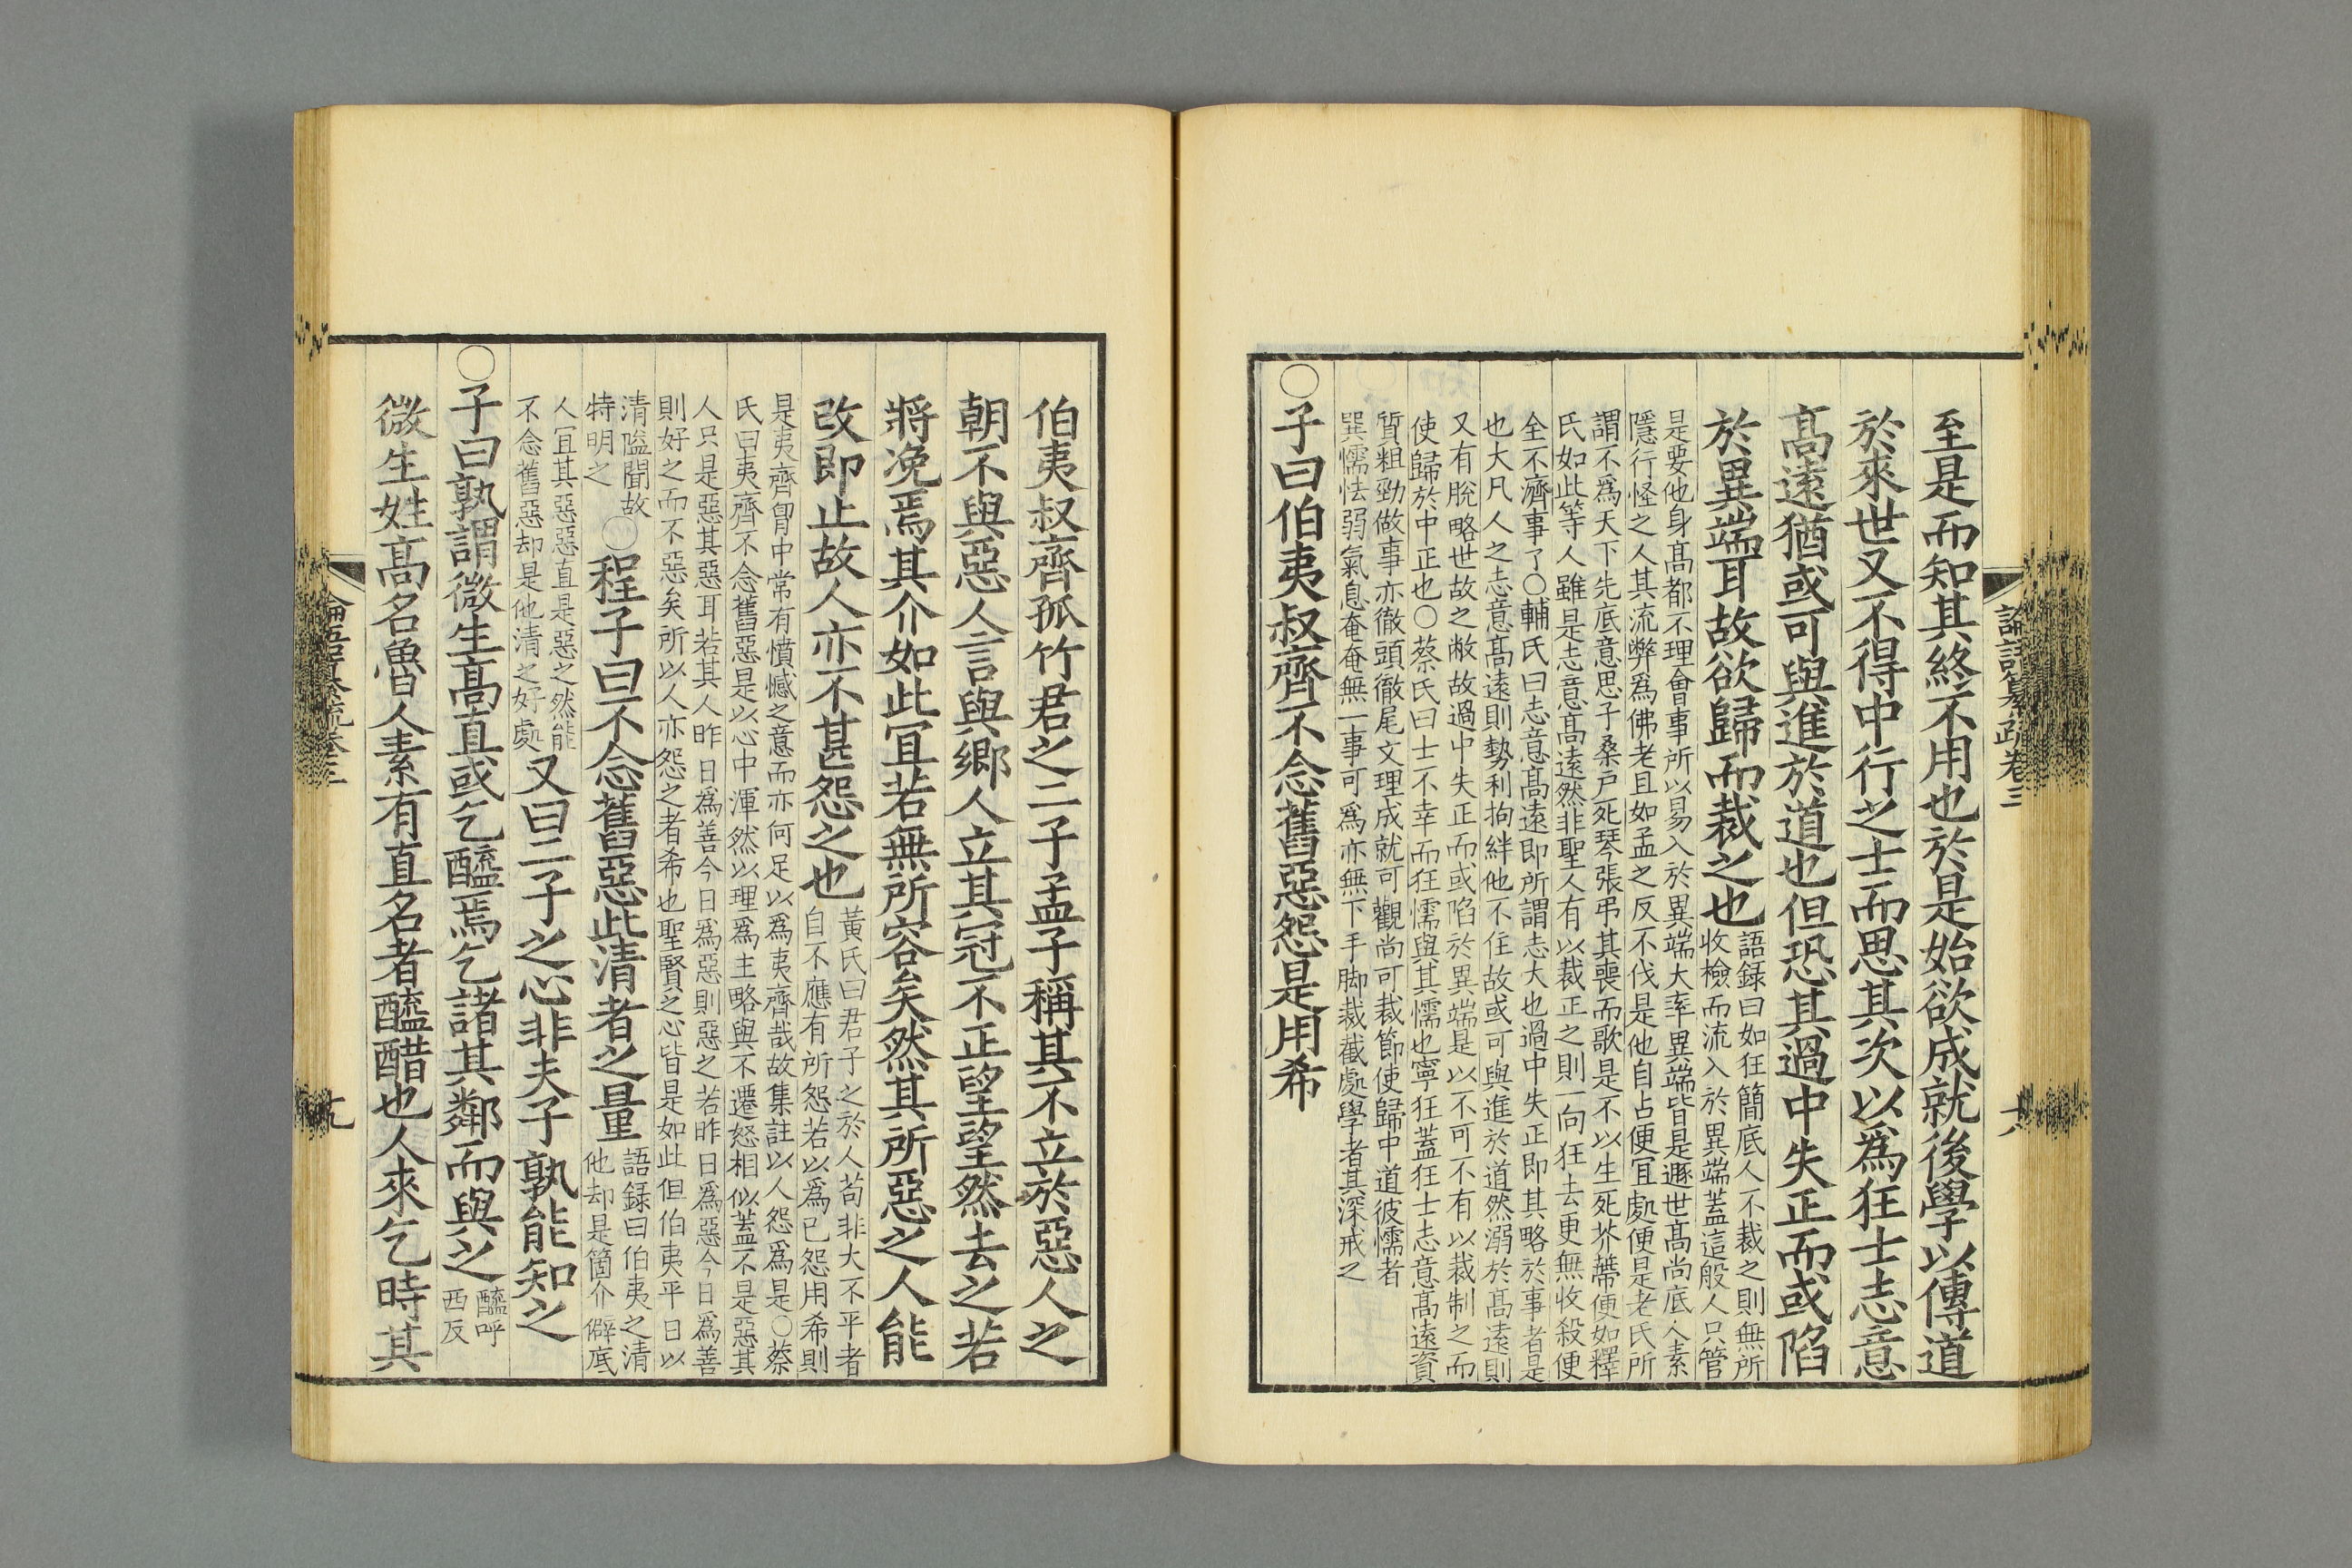 論語纂疏卷三
至是而知其終不用也於是始欲成就後學以傳道
於來世又不得中行之士而思其次以爲狂士志意
高遠猶或可與進於道也但恐其過中失正而或陷
於異端耳故欲歸而裁之也
語録曰如狂簡底人不裁之則無所
收檢而流入於異端蓋這般人只管
是要他身高都不理會事所以易入於異端大率異端皆是遯世高尚底人素
隱行怪之人其流弊爲佛老且如孟之反不伐是他自占便冝處便是老氏所
謂不爲天下先底意思子桑戸死琴張弔其喪而歌是不以生死芥蔕便如釋
氏如此等人雖是志意高遠然非聖人有以裁正之則一向狂去更無收殺便
全不濟事了○輔氏曰志意高遠即所謂志大也過中失正即其略於事者是
也大凡人之志意高遠則勢利拘絆他不住故或可與進於道然溺於高遠則
又有脫略世故之敝故過中失正而或陷於異端是以不可不有以裁制之而
使歸於中正也○蔡氏曰士不幸而狂懦與其懦也寧狂蓋狂士志意高遠資
質粗勁做事亦徹頭徹尾文理成就可觀尚可裁節使歸中道彼懦者
巽懦怯弱氣息奄奄無一事可爲亦無下手脚裁截處學者其深戒之
○子曰伯夷叔齊不念舊惡怨是用希
伯夷叔齊孤竹君之二子孟子稱其不立於惡人之
朝不與惡人言與鄉人立其冠不正望望然去之若
將浼焉其介如此冝若無所容矣然其所惡之人能
改即止故人亦不甚怨之也
黃氏曰君子之於人苟非大不平者
自不應有所怨若以爲已怨用希則
是夷齊胷中常有憤憾之意而亦何足以爲夷齊哉故集註以人怨爲是○蔡
氏曰夷齊不念舊惡是以心中渾然以理爲主略與不遷怒相似蓋不是惡其
人只是惡其惡耳若其人昨日爲善今日爲惡則惡之若昨日爲惡今日爲善
則好之而不惡矣所以人亦怨之者希也聖賢之心皆是如此但伯夷平日以
清隘聞故
特明之
○程子曰不念舊惡此清者之量
語録曰伯夷之清
他却是箇介僻底
人冝其惡惡直是惡之然能
不念舊惡却是他清之好處
又曰二子之心非夫子孰能知之
○子曰孰謂微生高直或乞醯焉乞諸其鄰而與之
醯呼
西反
微生姓高名魯人素有直名者醯醋也人來乞時其
論語纂疏卷三